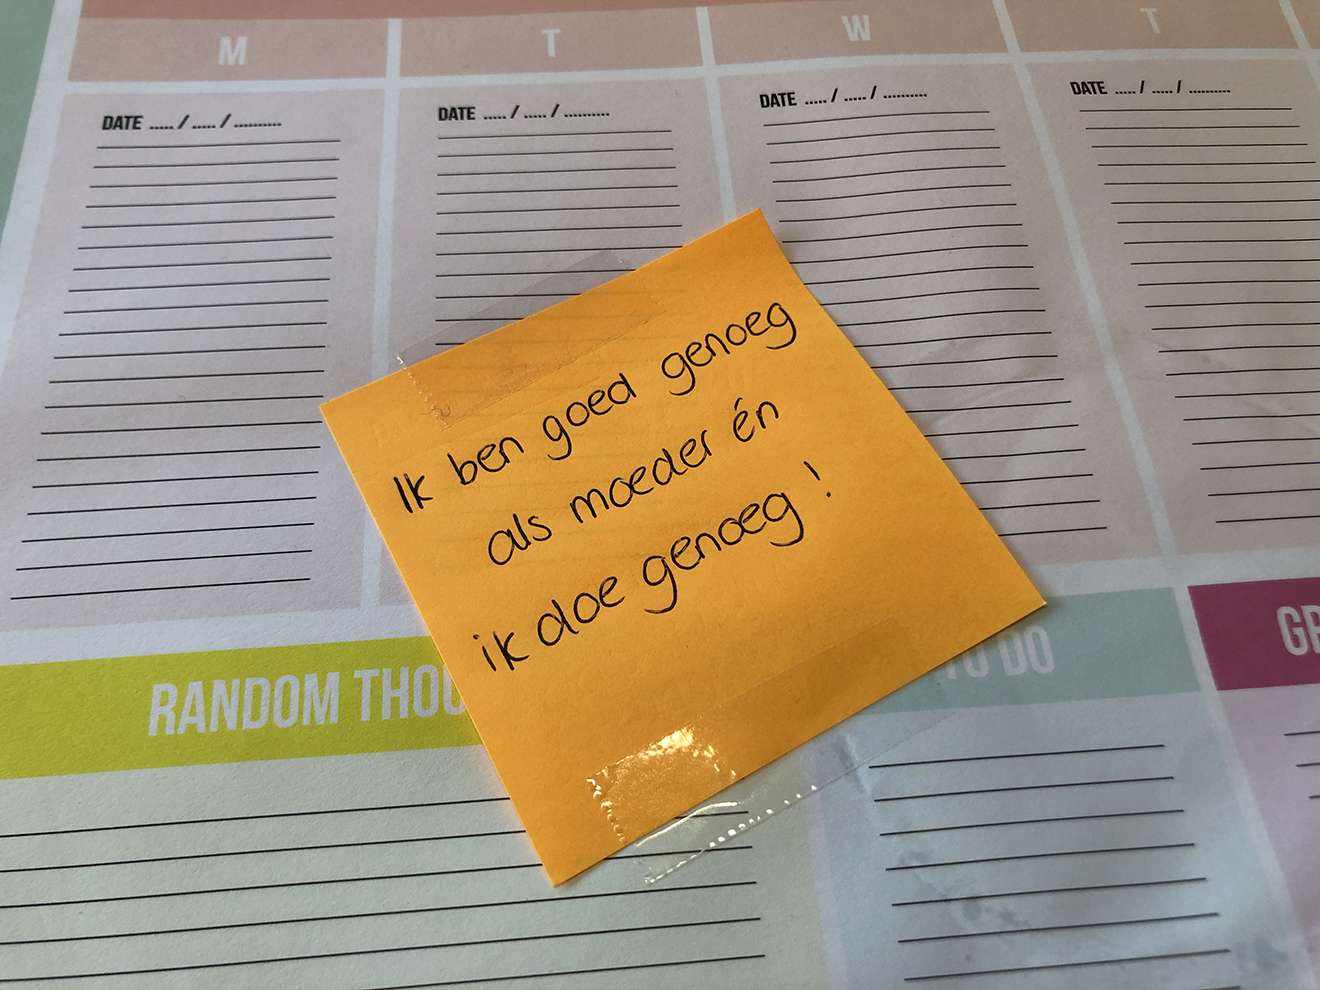 M T W T
DATE ..... / ..... / ..........
DATE ..... / ..... / ..........
DATE ..... / ..... / ..........
DATE ..... / ..... / ..........
Ik ben goed genoeg
als moeder én
ik doe genoeg !
RANDOM
TO DO